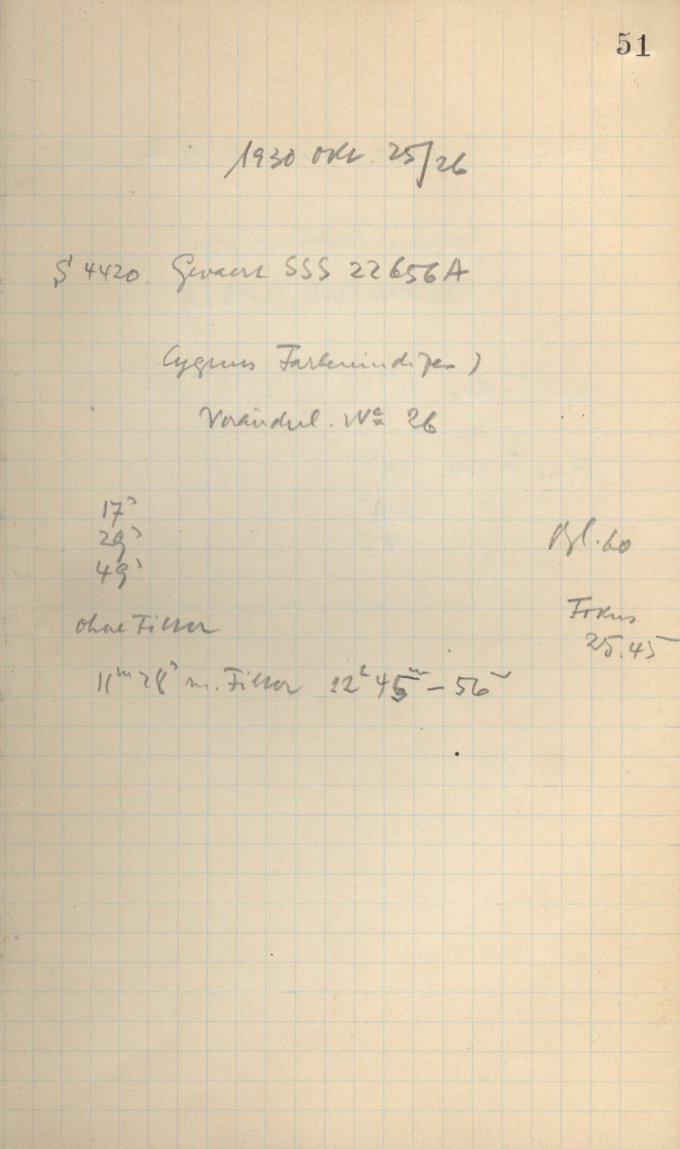 51
1930 Okt. 25/26
S 4420. Gevaert SSS 22656A
Cygnus Farbenindizes)
Veränderl. Na 26
17s
29s
49s
Bl. 60
ohne Filter
Fokus
25.45
11m 28s m. Filter 22h 45m – 56m